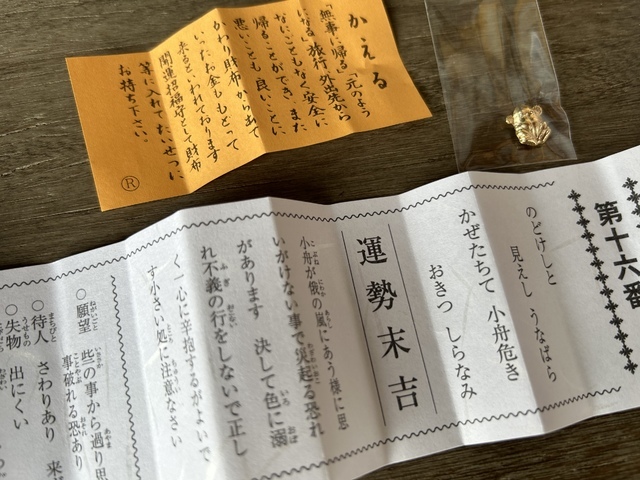 かえる
「無事に帰る」「元のよう
になる」旅行、外出先から
なにごともなく安全に
帰ることができ、また
悪いことも良いことに
かわり財布から出て
いったお金ももどって
来るといわれております
開運招福好として財布
等に入れてたいせつに
お持ち下さい。
Ⓡ
第十六番
のどけしと
見えし うなばら
かぜたちて 小舟危き
おきつ しらなみ
運勢末吉
小舟が俄の嵐にあう様に思
いがけない事で災起る恐れ
があります 決して色に溺
れ不義の行をしないで正し
く一心に辛抱するがよいで
す小さい処に注意なさい
○願望 些の事から過り思
事破れる恐あり
○待人 さわりあり 来
○失物 出にくい